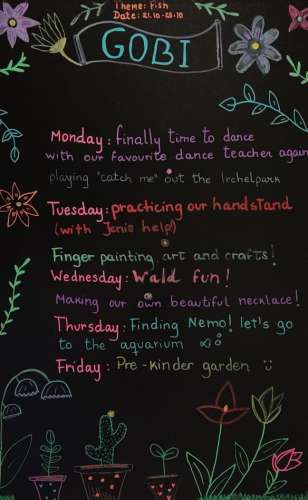 Theme: Fish
Date: 21.10-25.10
GOBI
Monday: finally time to dance
with our favourite dance teacher again
playing "catch me" out the Irchelpark
Tuesday: practicing our handstand
(with Jenis help!)
Finger painting, art and crafts!
Wednesday: Wald fun!
Making our own beautiful necklace!
Thursday: Finding Nemo! let's go
to the aquarium
Friday: Pre-Kinder garden